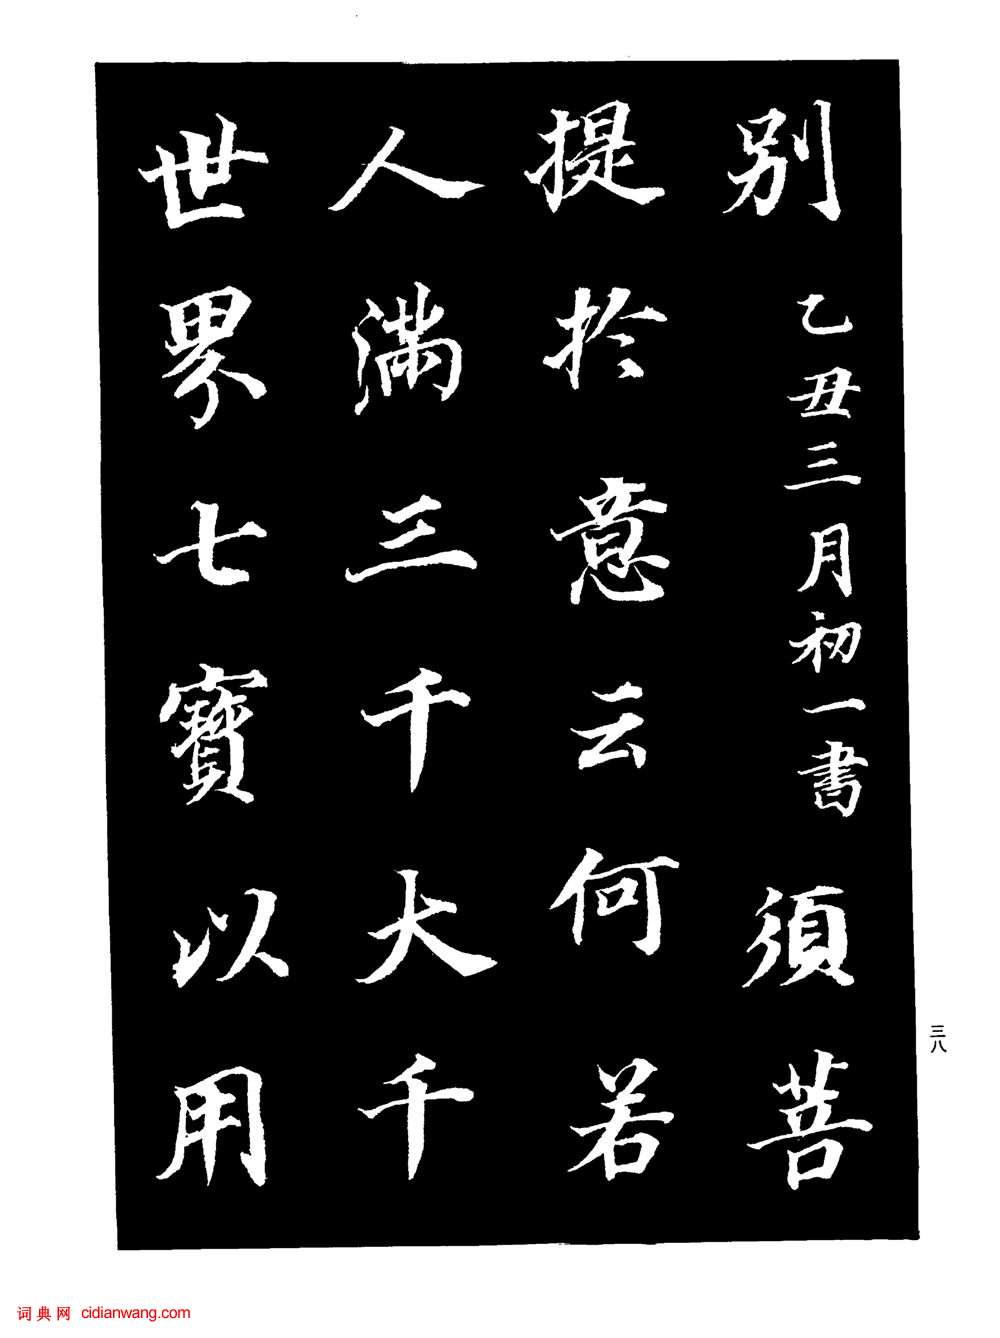 别 乙丑三月初一書 須菩
提於意云何若
人满三千大千
世界七寶以用
三八
词典网 cidianwang.com